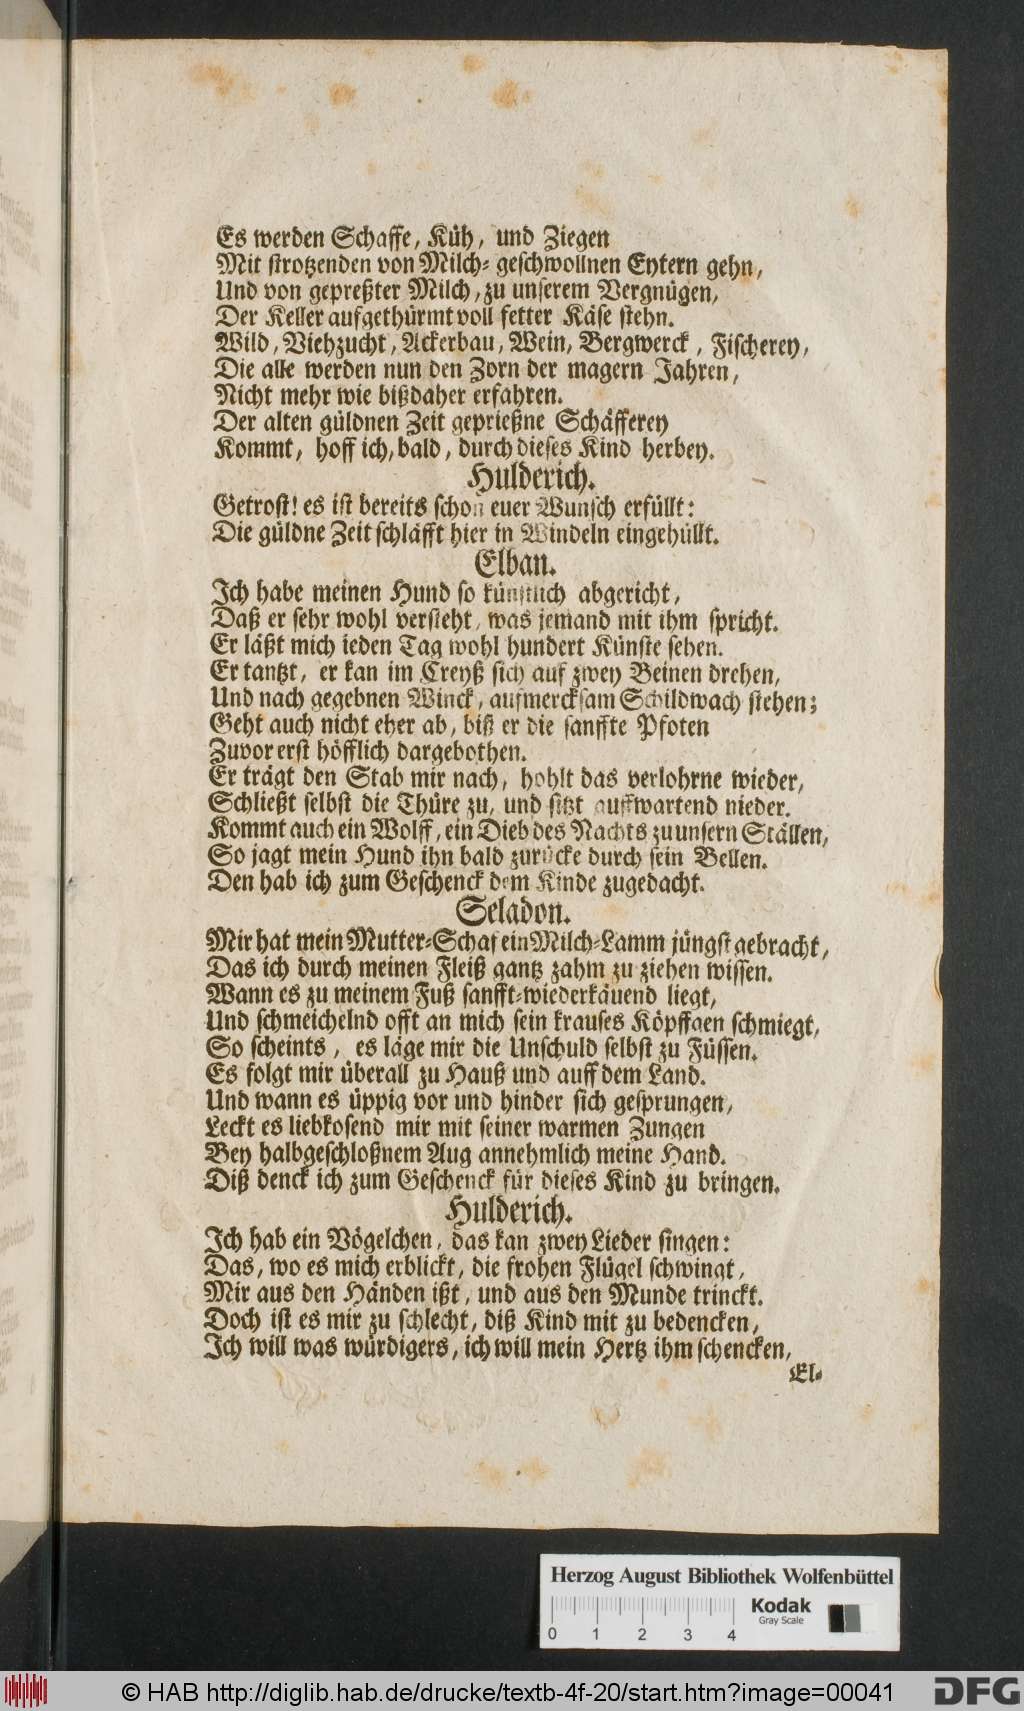 Es werden Schaffe, Küh, und Ziegen
Mit strotzenden von Milch-geschwollnen Eytern gehn,
Und von gepreßter Milch, zu unserem Vergnügen,
Der Keller aufgethürmt voll fetter Käse stehn.
Wild, Viehzucht, Ackerbau, Wein, Bergwerck, Fischerey,
Die alle werden nun den Zorn der magern Jahren,
Nicht mehr wie bißdaher erfahren.
Der alten güldnen Zeit geprießne Schäfferey
Kommt, hoff ich, bald, durch dieses Kind herbey.
Hulderich.
Getrost! es ist bereits schon euer Wunsch erfüllt:
Die güldne Zeit schläfft hier in Windeln eingehüllt.
Elban.
Ich habe meinen Hund so künstlich abgericht,
Daß er sehr wohl versteht, was jemand mit ihm spricht.
Er läßt mich jeden Tag wohl hundert Künste sehen.
Er tantzt, er kan im Creyß sich auf zwey Beinen drehen,
Und nach gegebnen Winck, aufmercksam Schildwach stehen;
Geht auch nicht eher ab, biß er die sanffte Pfoten
Zuvor erst höfflich dargebothen.
Er trägt den Stab mir nach, hohlt das verlohrne wieder,
Schließt selbst die Thüre zu, und sitzt auffwartend nieder.
Kommt auch ein Wolff, ein Dieb des Nachts zu unsern Ställen,
So jagt mein Hund ihn bald zurücke durch sein Bellen.
Den hab ich zum Geschenck dem Kinde zugedacht.
Seladon.
Mir hat mein Mutter-Schaf ein Milch-Lamm jüngst gebracht,
Das ich durch meinen Fleiß gantz zahm zu ziehen wissen.
Wann es zu meinem Fuß sanfft-wiederkäuend liegt,
Und schmeichelnd offt an mich sein krauses Köpffgen schmiegt,
So scheints, es läge mir die Unschuld selbst zu Füssen.
Es folgt mir überall zu Hauß und auff dem Land.
Und wann es üppig vor und hinder sich gesprungen,
Leckt es liebkosend mir mit seiner warmen Zungen
Bey halbgeschloßnem Aug annehmlich meine Hand.
Diß denck ich zum Geschenck für dieses Kind zu bringen.
Hulderich.
Ich hab ein Vögelchen, das kan zwey Lieder singen:
Das, wo es mich erblickt, die frohen Flügel schwingt,
Mir aus den Händen ißt, und aus den Munde trinckt.
Doch ist es mir zu schlecht, diß Kind mit zu bedencken,
Ich will was würdigers, ich will mein Hertz ihm schencken,
El-
Herzog August Bibliothek Wolfenbüttel
Kodak
Gray Scale
0 1 2 3 4
© HAB http://diglib.hab.de/drucke/textb-4f-20/start.htm?image=00041
DFG